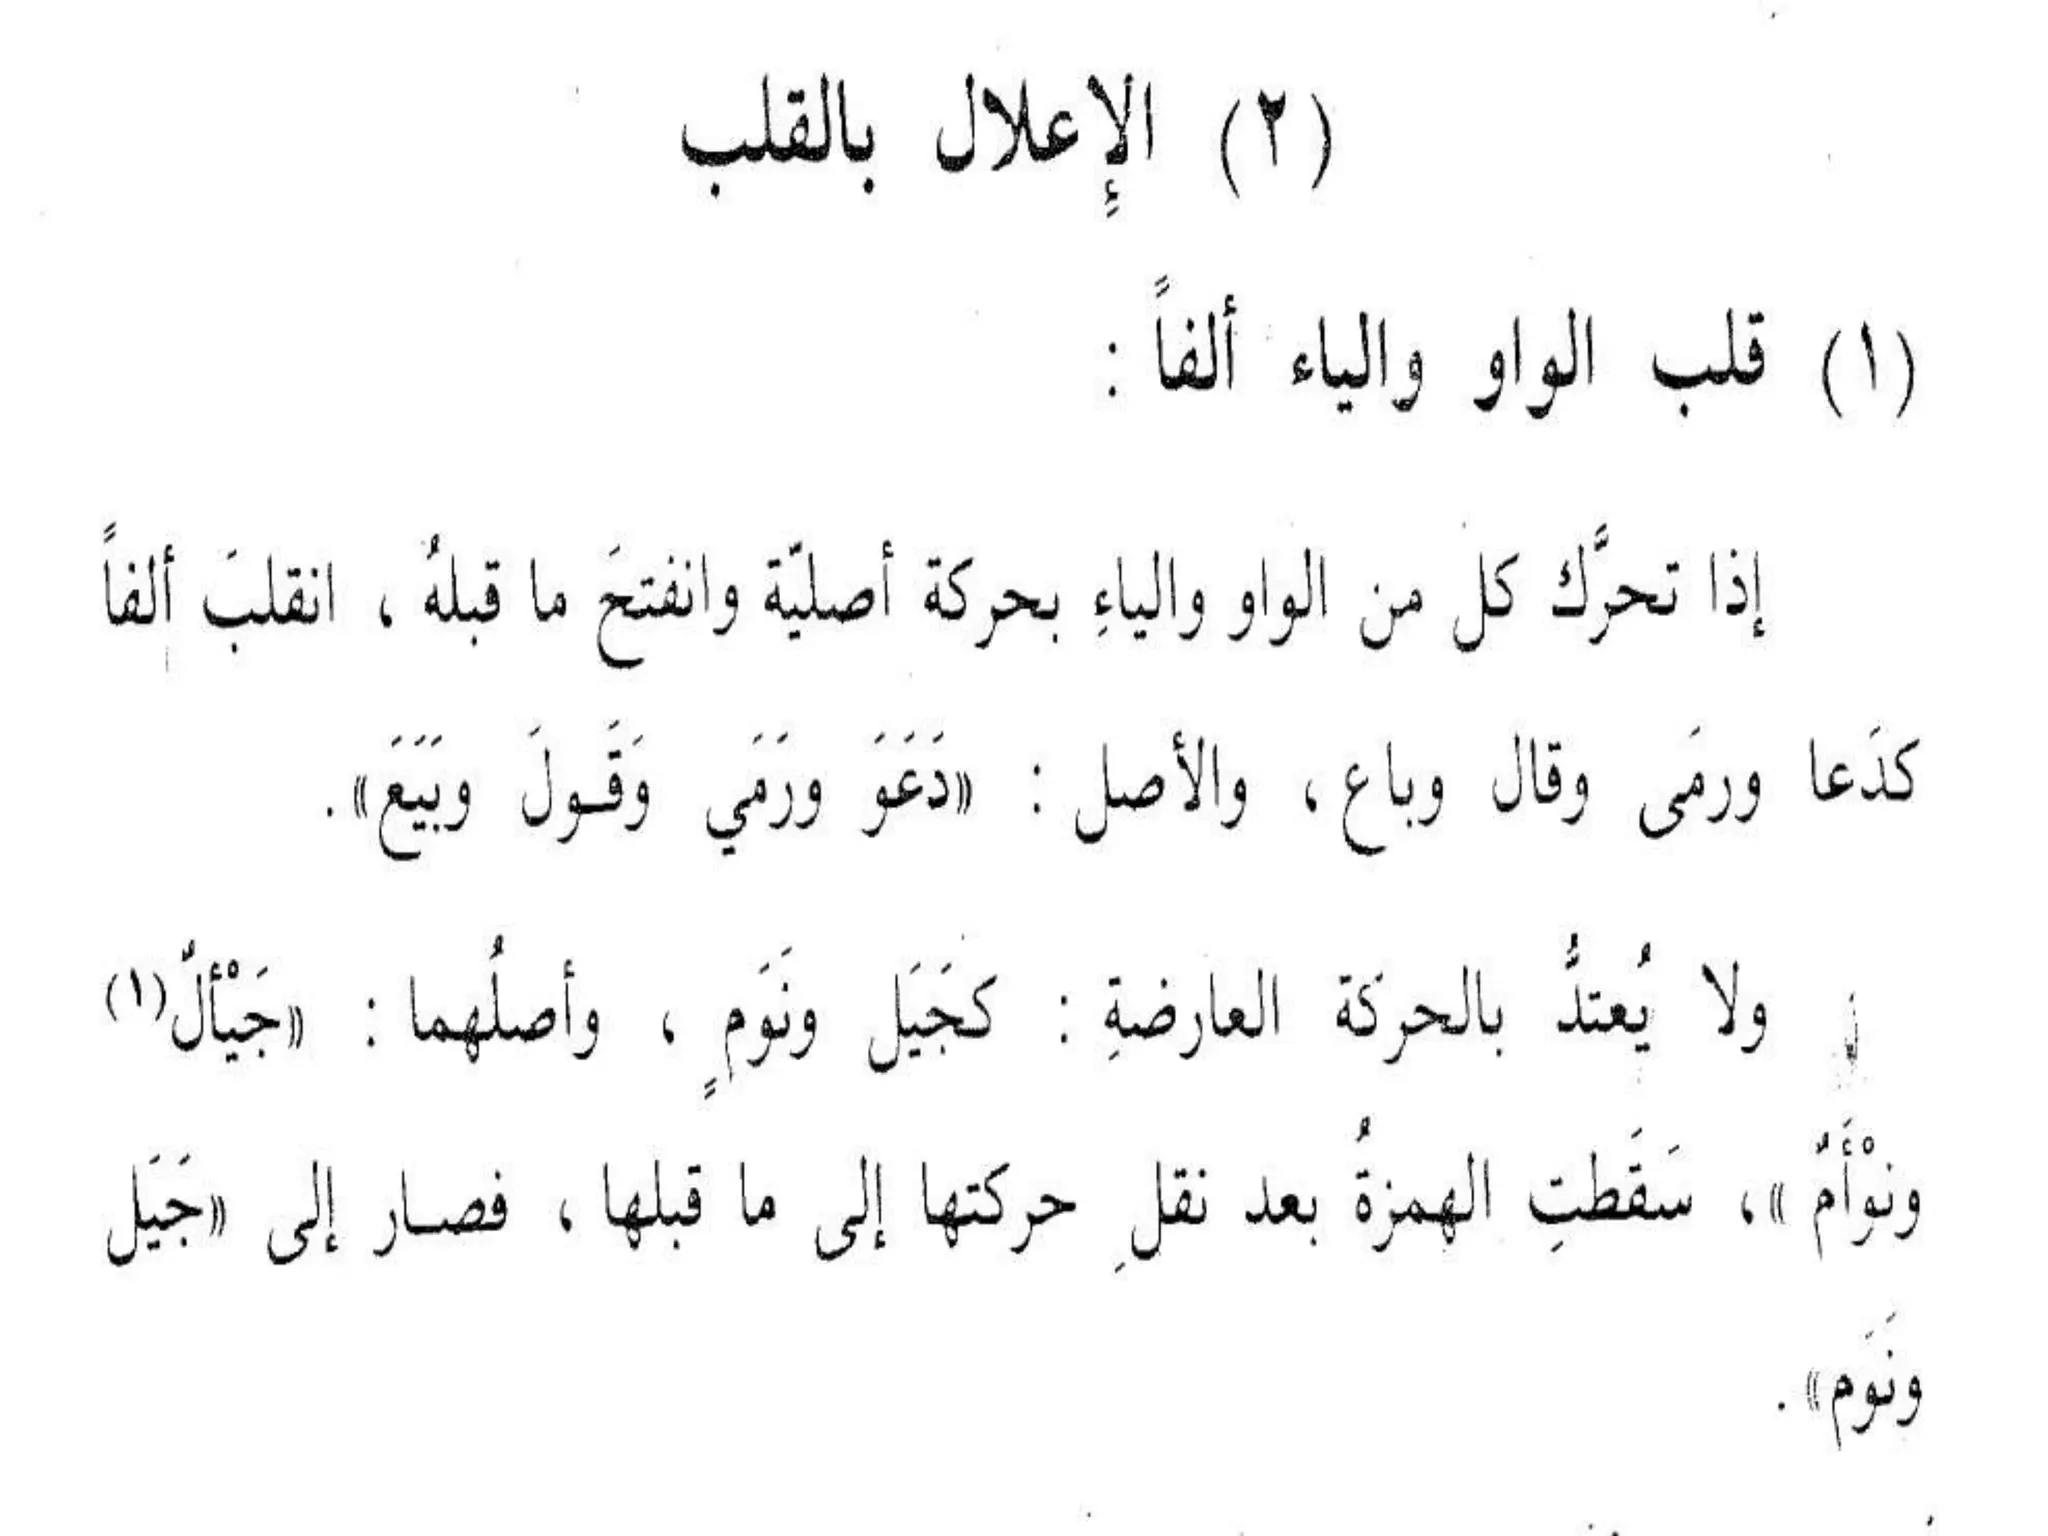 (٢) الإِعلال بالقلب
(١) قلب الواو والياء ألفاً :
إذا تحرَّك كل من الواو والياءِ بحركة أصليّة وانفتحَ ما قبلهُ ، انقلبَ ألفاً
كدَعا ورمَى وقال وباع ، والأصل : «دَعَوَ ورَمَي وَقَـولَ وبَيَعَ» .
ولا يُعتدُّ بالحركة العارضةِ : كجَيَل ونَوَمٍ ، وأصلُهما : «جَيْألٌ(١)
ونوْأَمٌ » ، سَقَطتِ الهمزةُ بعد نقلِ حركتها إلى ما قبلها ، فصـار إلى «جَيَل
ونَوَم» .